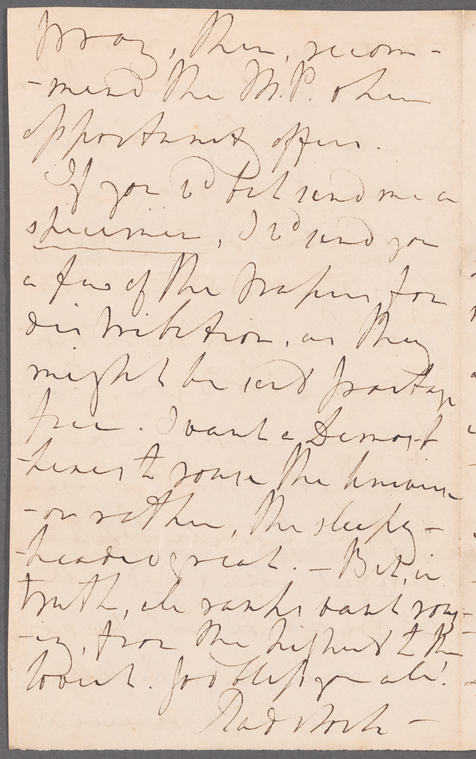 pray, then, recom-
-mend the M.P. when
opportunity offers.
If you wd but send me a
specimen, I wd send you
a few of the papers for
distribution, as they
might be sent postage
free. I want a Demost
henes to rouse the
-or rather, the sleepy-
headed great. - But, in
truth, all ranks want rous-
-ing, from the highest to the
lowest. God bless you all!
Radstock -